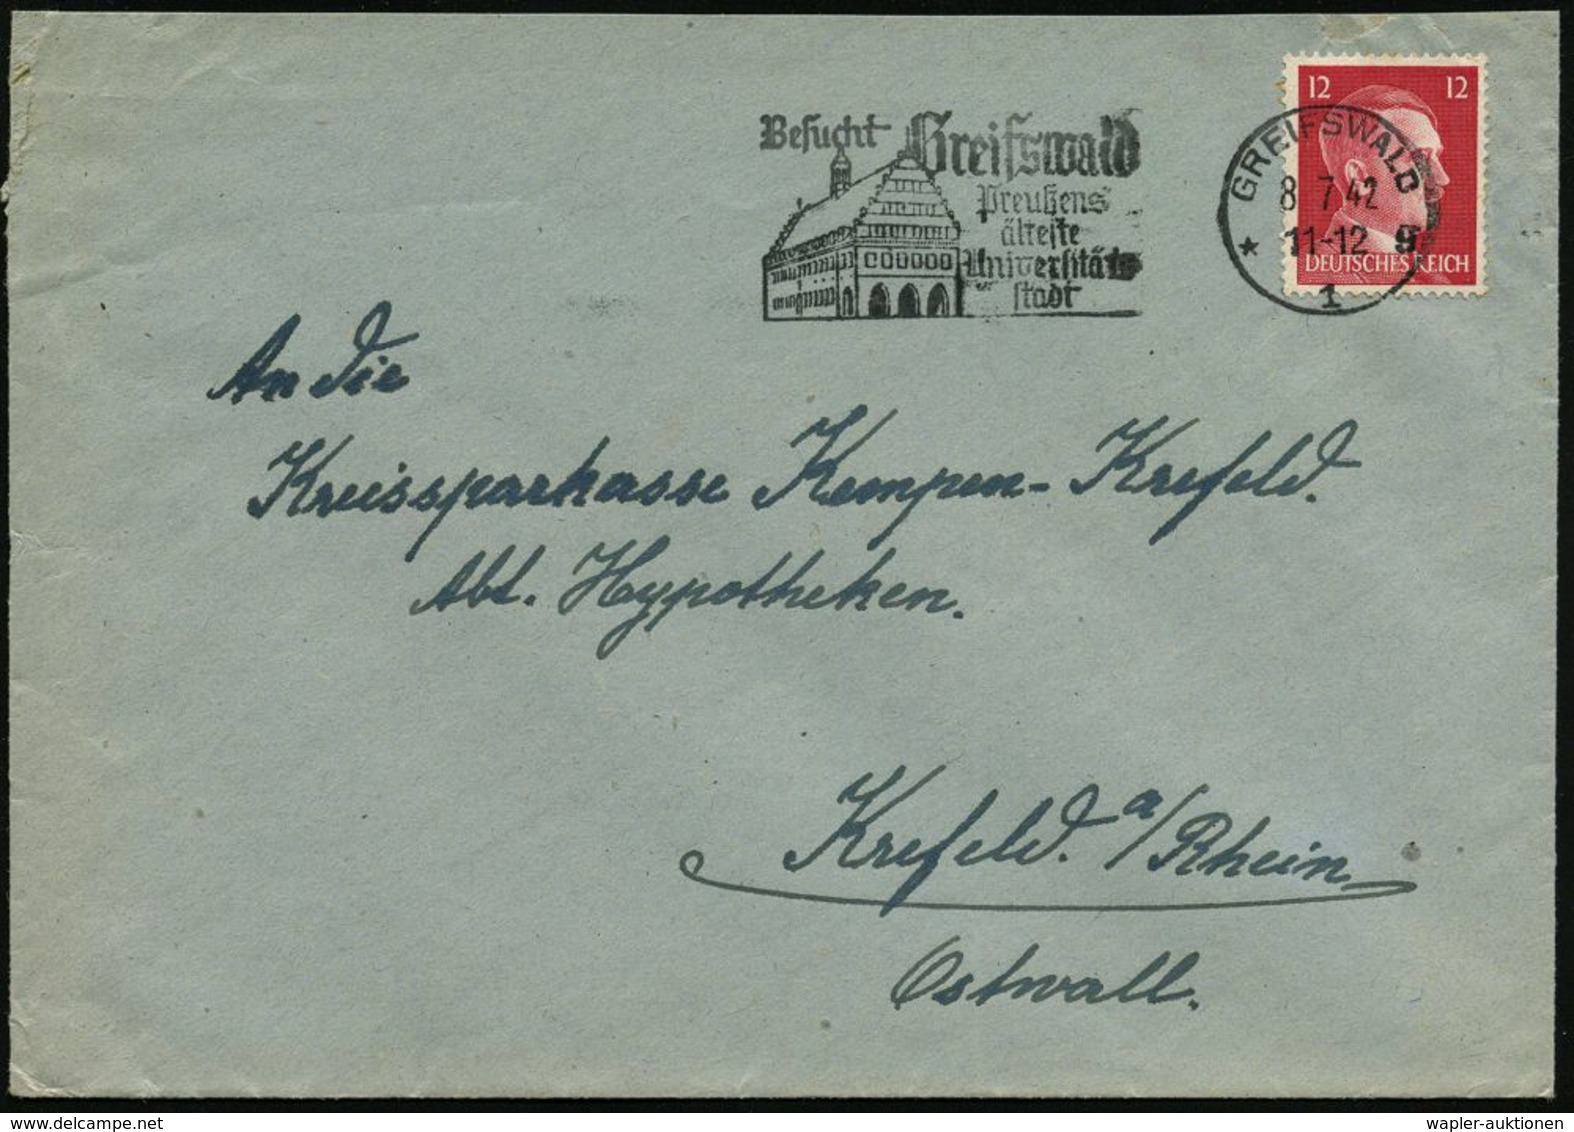 Besucht Greifswald
Preußens
älteste
Universitäts
stadt
GREIFSWALD
8.7.42
11-12
1
12 12
DEUTSCHES REICH
An die
Kreissparkasse Kempen-Krefeld.
Abt. Hypotheken.
Krefeld. a/Rhein
Ostwall.
wapler-auktionen